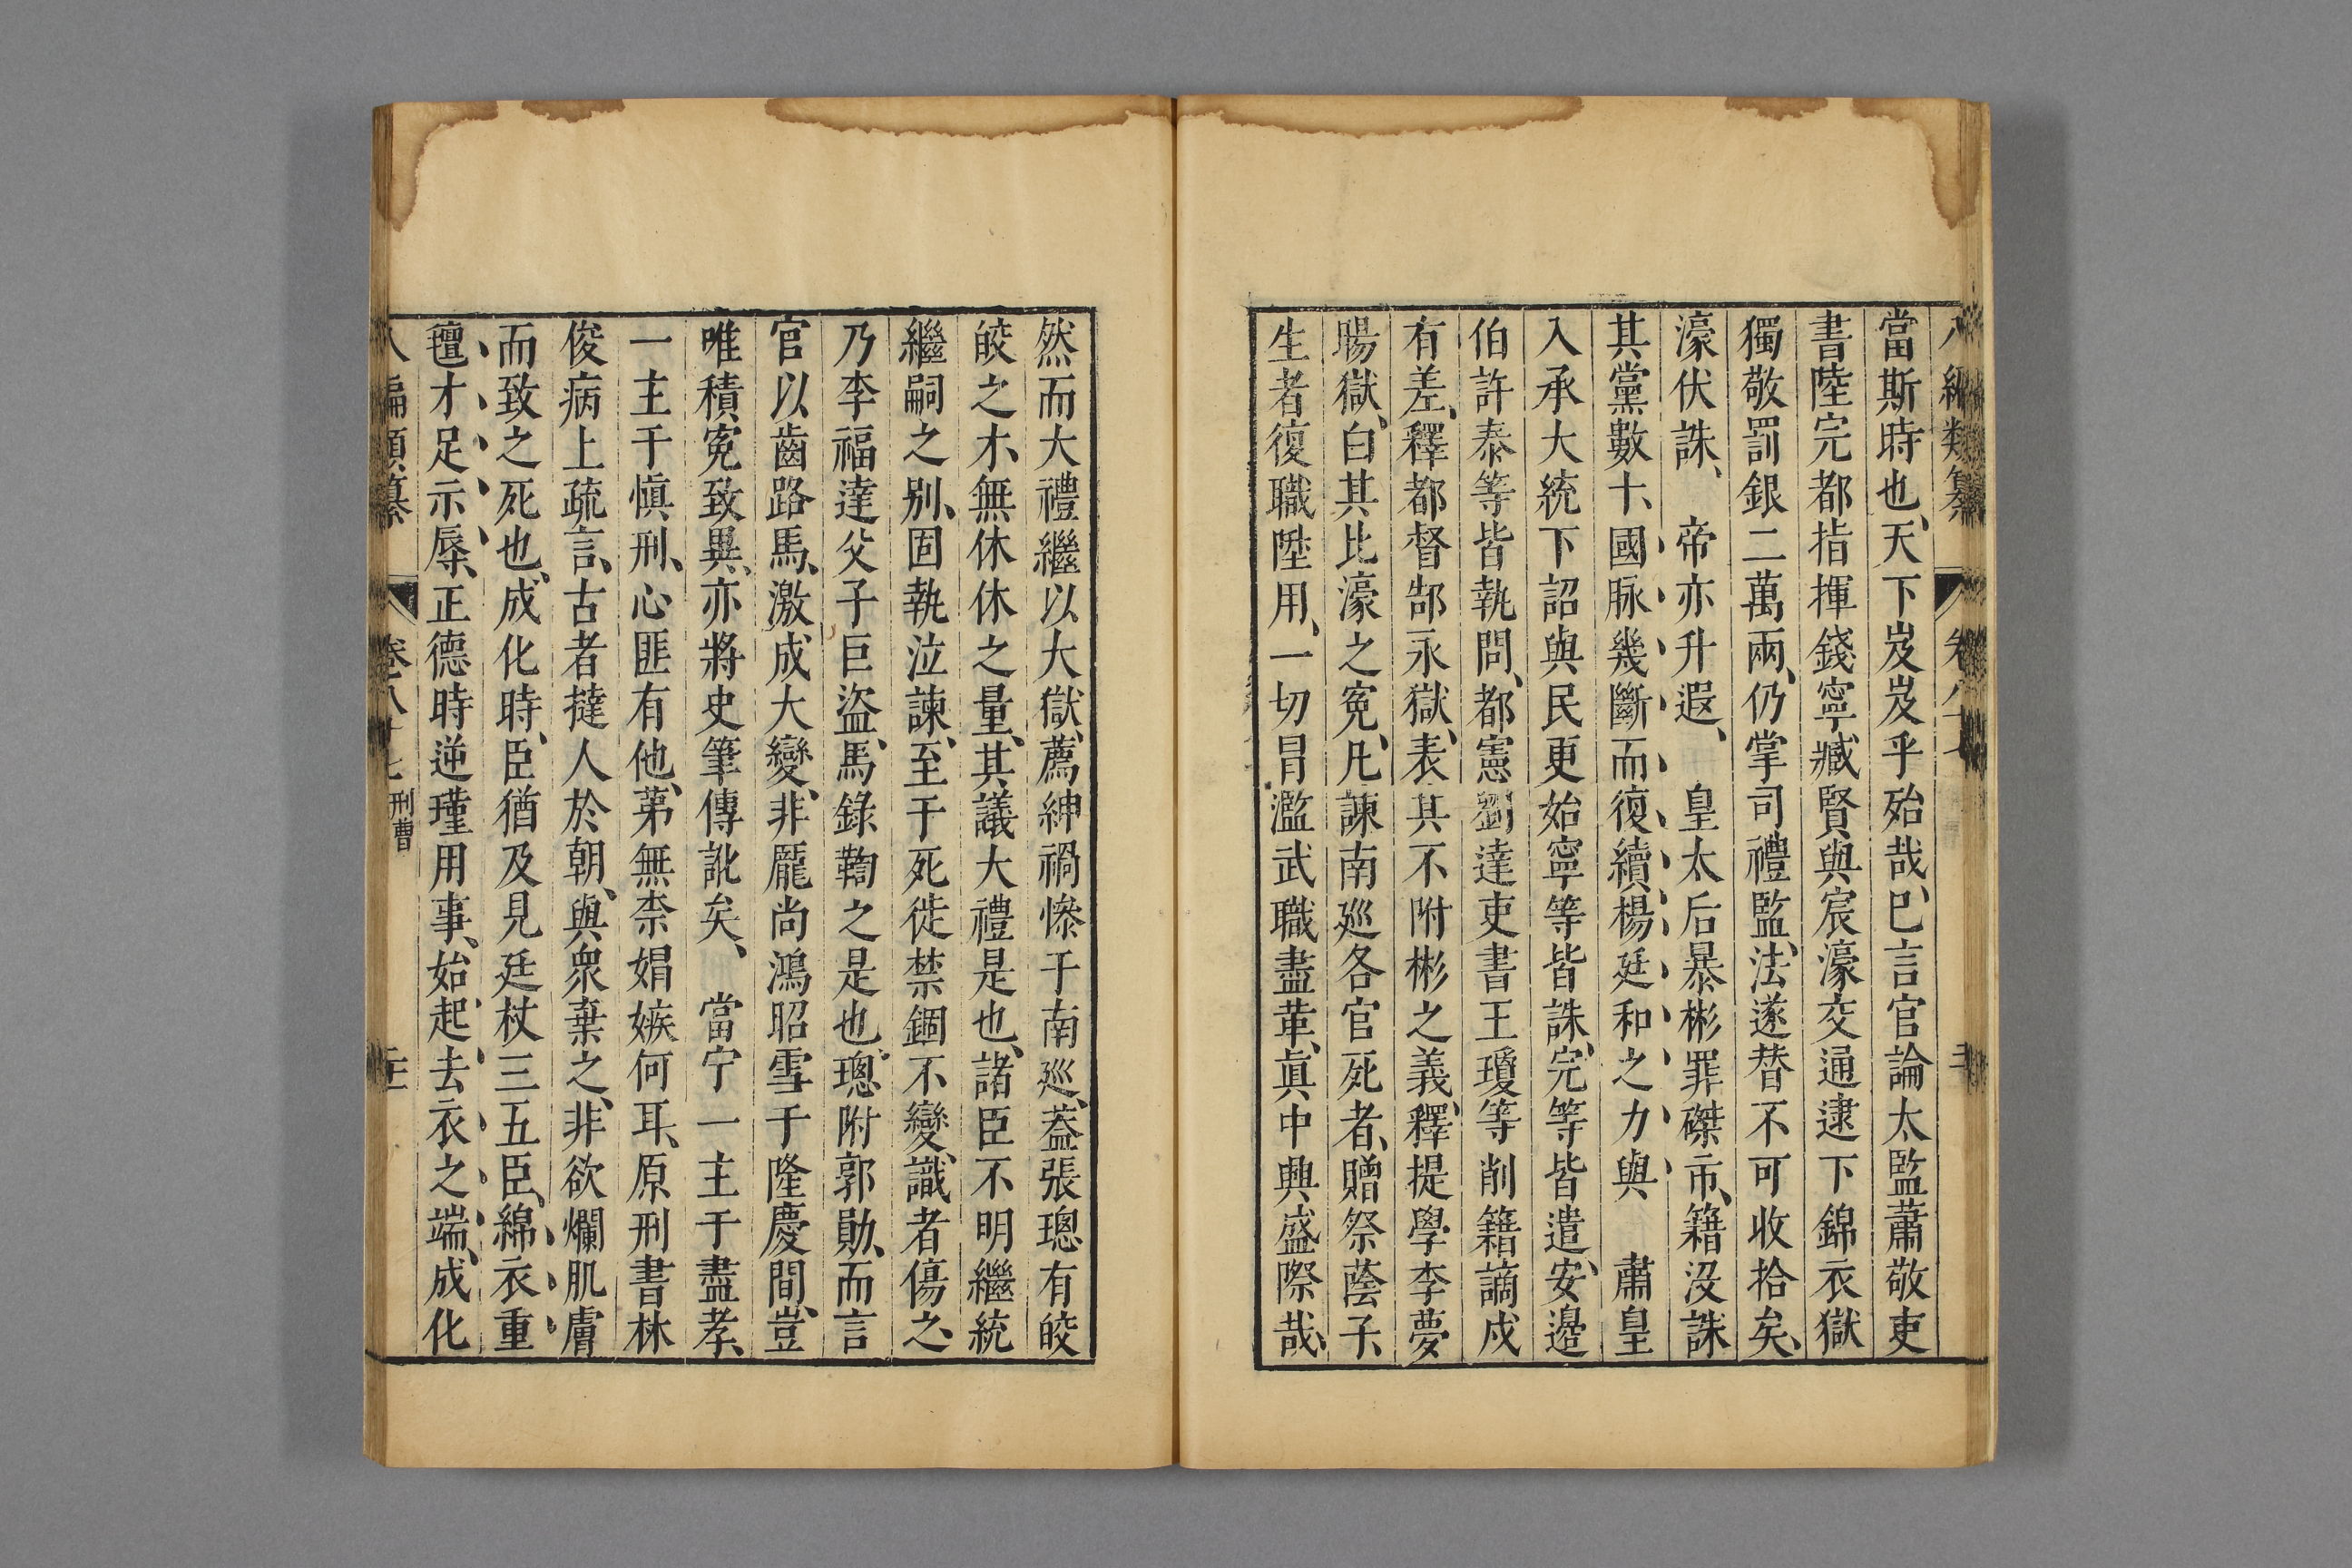 當斯時也、天下岌岌乎殆哉、已言官論太監蕭敬吏
書陸完都指揮錢寧、臧賢與宸濠交通逮下錦衣獄
獨敬罰銀二萬兩、仍掌司禮監、法遂替不可收拾矣、
濠伏誅、　帝亦升遐、　皇太后暴彬罪磔市、籍沒誅
其黨數十、國脉幾斷而復續楊廷和之力與　肅皇
入承大統下詔與民更始寧等皆誅、完等皆遣、安邊
伯許泰等皆執問、都憲劉達吏書王瓊等削籍謫戍
有差、釋都督郜永獄、表其不附彬之義、釋提學李夢
陽獄、白其比濠之寃、凡諫南廵各官死者、贈祭蔭子、
生者復職陞用、一切冒濫武職盡革、眞中興盛際哉、
然而大禮繼以大獄、薦紳禍慘于南廵、葢張璁有皎
皎之才、無休休之量、其議大禮是也、諸臣不明繼統
繼嗣之别、固執泣諫、至于死徙禁錮不變、識者傷之、
乃李福達父子巨盜、馬錄鞫之是也、璁附郭勛、而言
官以齒路馬、激成大變、非龎尚鴻昭雪于隆慶間、豈
唯積寃致異、亦將史筆傳訛矣、　當宁一主于盡孝、
一主于愼刑、心匪有他、苐無柰娼嫉何耳、原刑書林
俊病上疏言、古者撻人於朝、與衆棄之、非欲爛肌膚
而致之死也、成化時、臣猶及見廷杖三五臣、綿衣重
氊才足示辱、正德時逆瑾用事、始起去衣之端、成化
八編類纂　卷八十七　刑曹